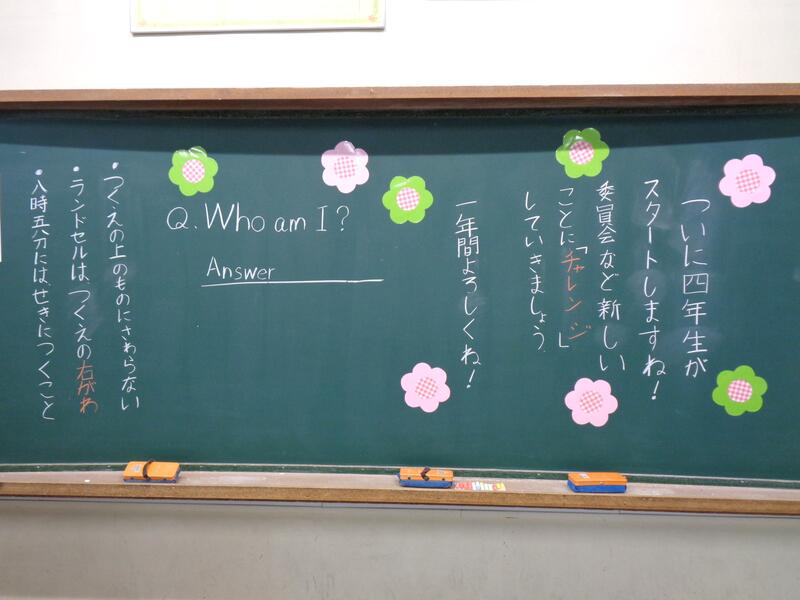 ついに四年生が
スタートしますね！
委員会など新しい
ことに「チャレンジ」
していきましょう
一年間よろしくね！
Q. Who am I?
Answer
・つくえの上のものにさわらない
・ランドセルは、つくえの右がわ
・八時五分には、せきにつくこと